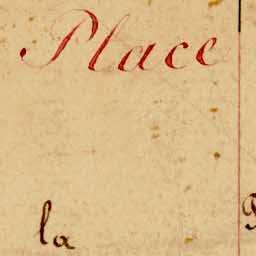 Place
la